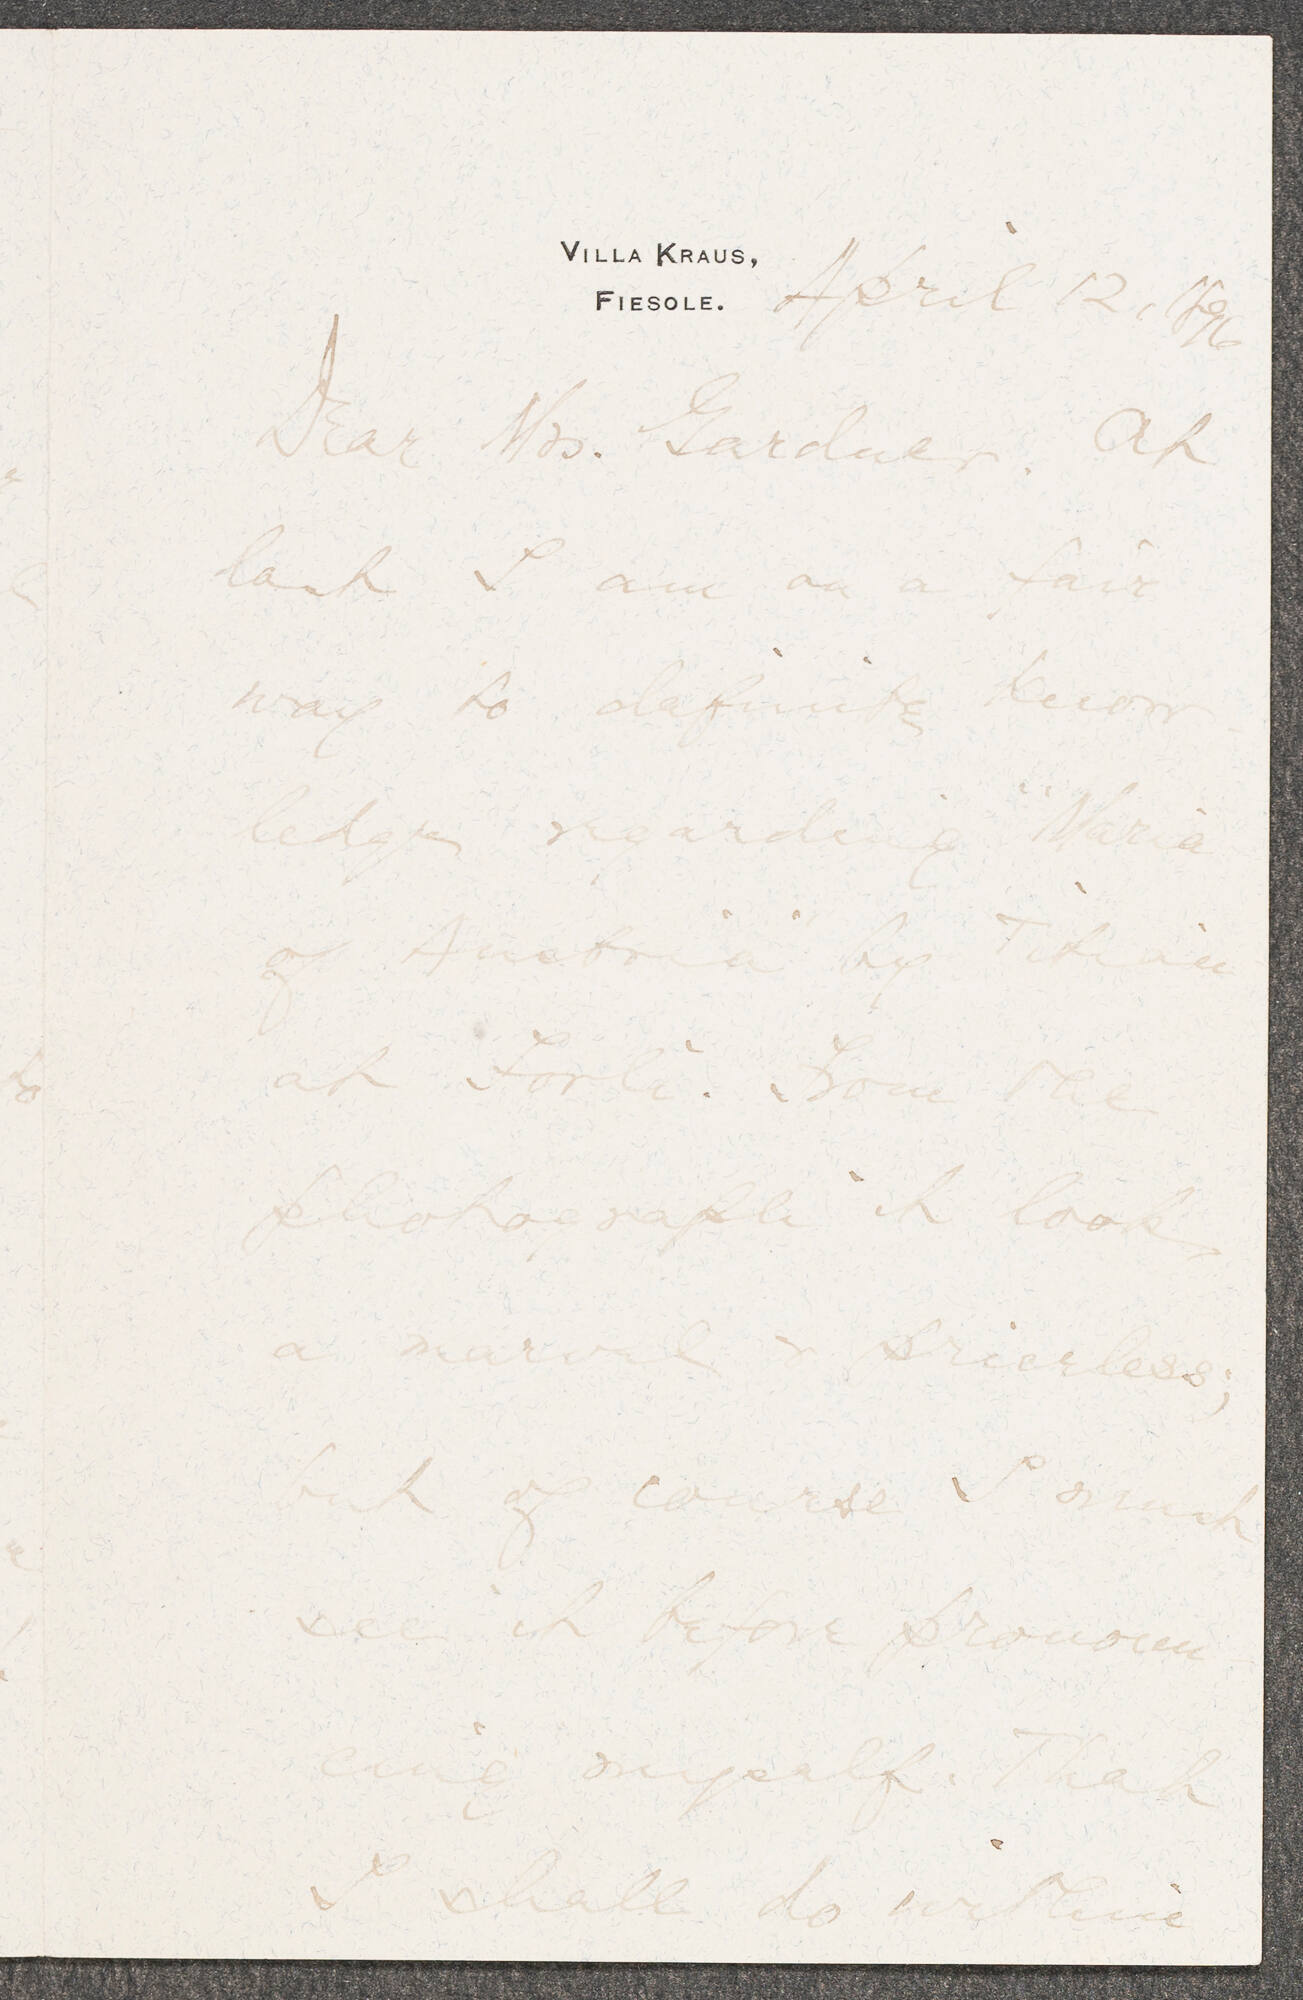 VILLA KRAUS,
FIESOLE.
April 12, 1896
Dear Mrs. Gardner. At
last I am on a fair
way to definite know
ledge regarding "Maria
of Austria" by Titian
at Forli. From the
photograph it looks
a marvel & priceless;
but of course I must
see it before pronoun
cing myself. That
I shall do within